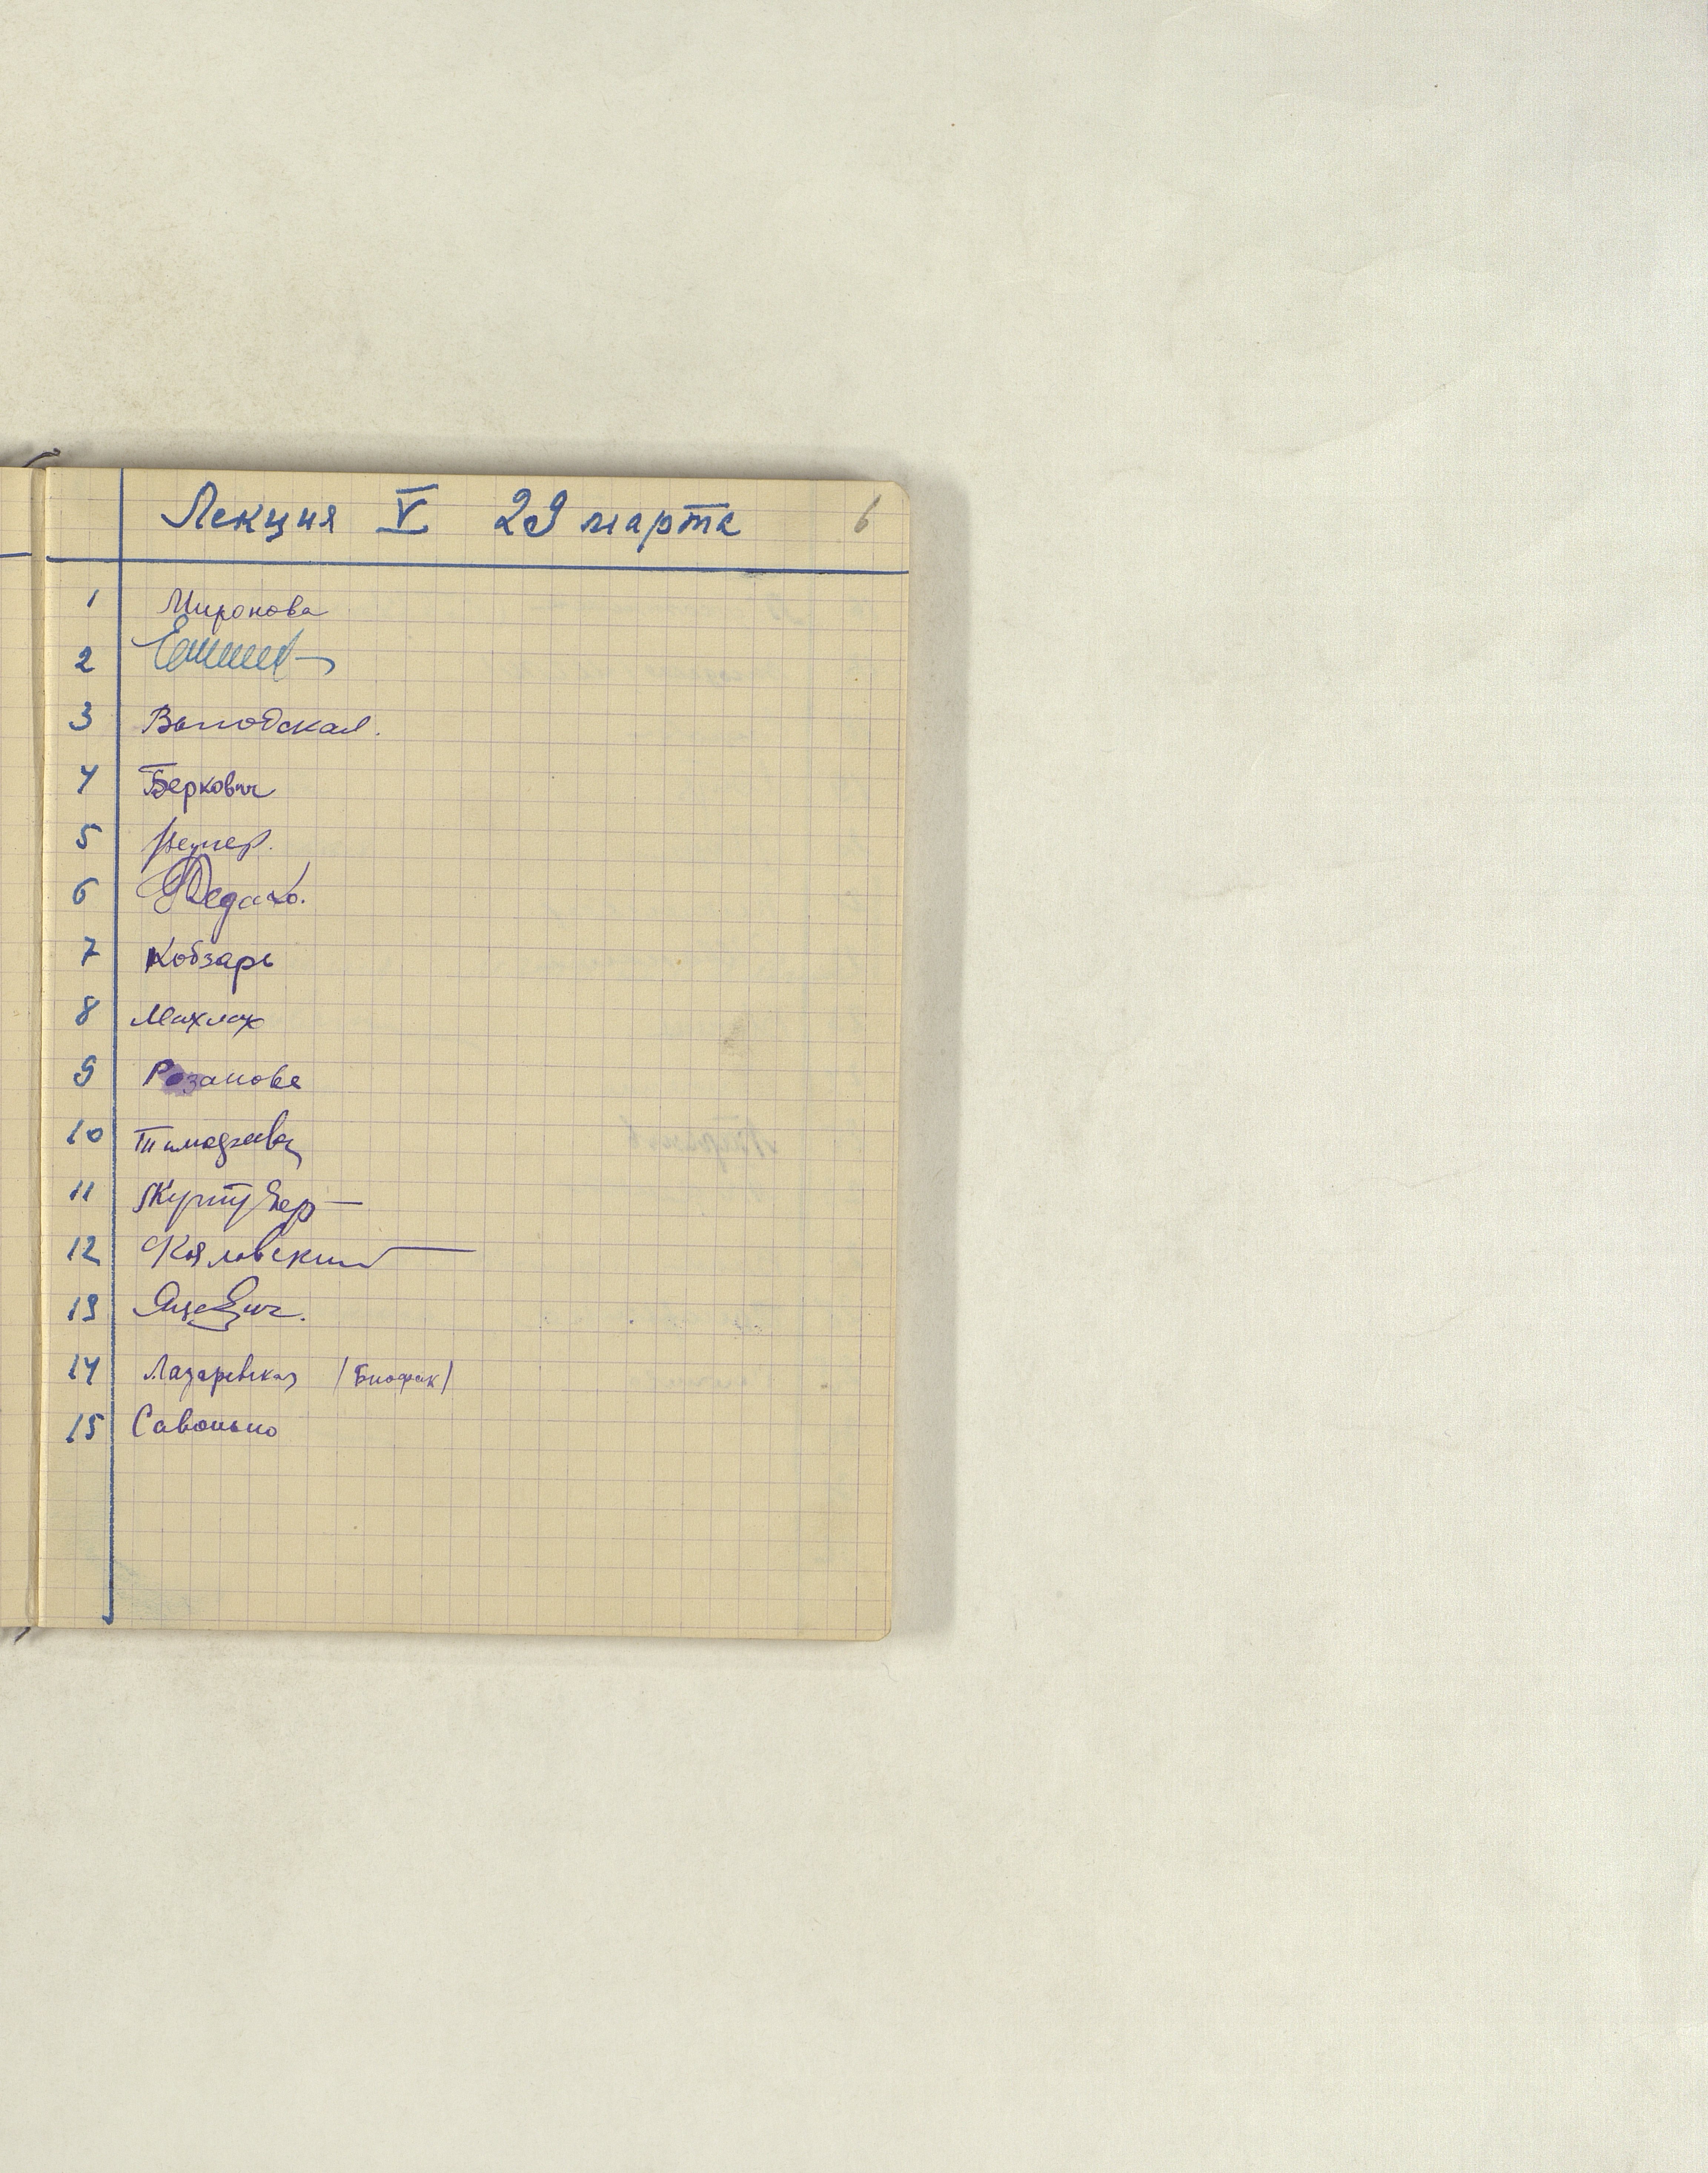 Лекция V 29 марта 6
1 Миронова
2
3 Выгодская.
4 Беркович
5
6
7 Кобзарь
8 Махлах
9 Розанова
10 Тимофеева
11
12 Кяловский
13 Яцкевич.
14 Лазаревская (Биофак)
15 Савонько